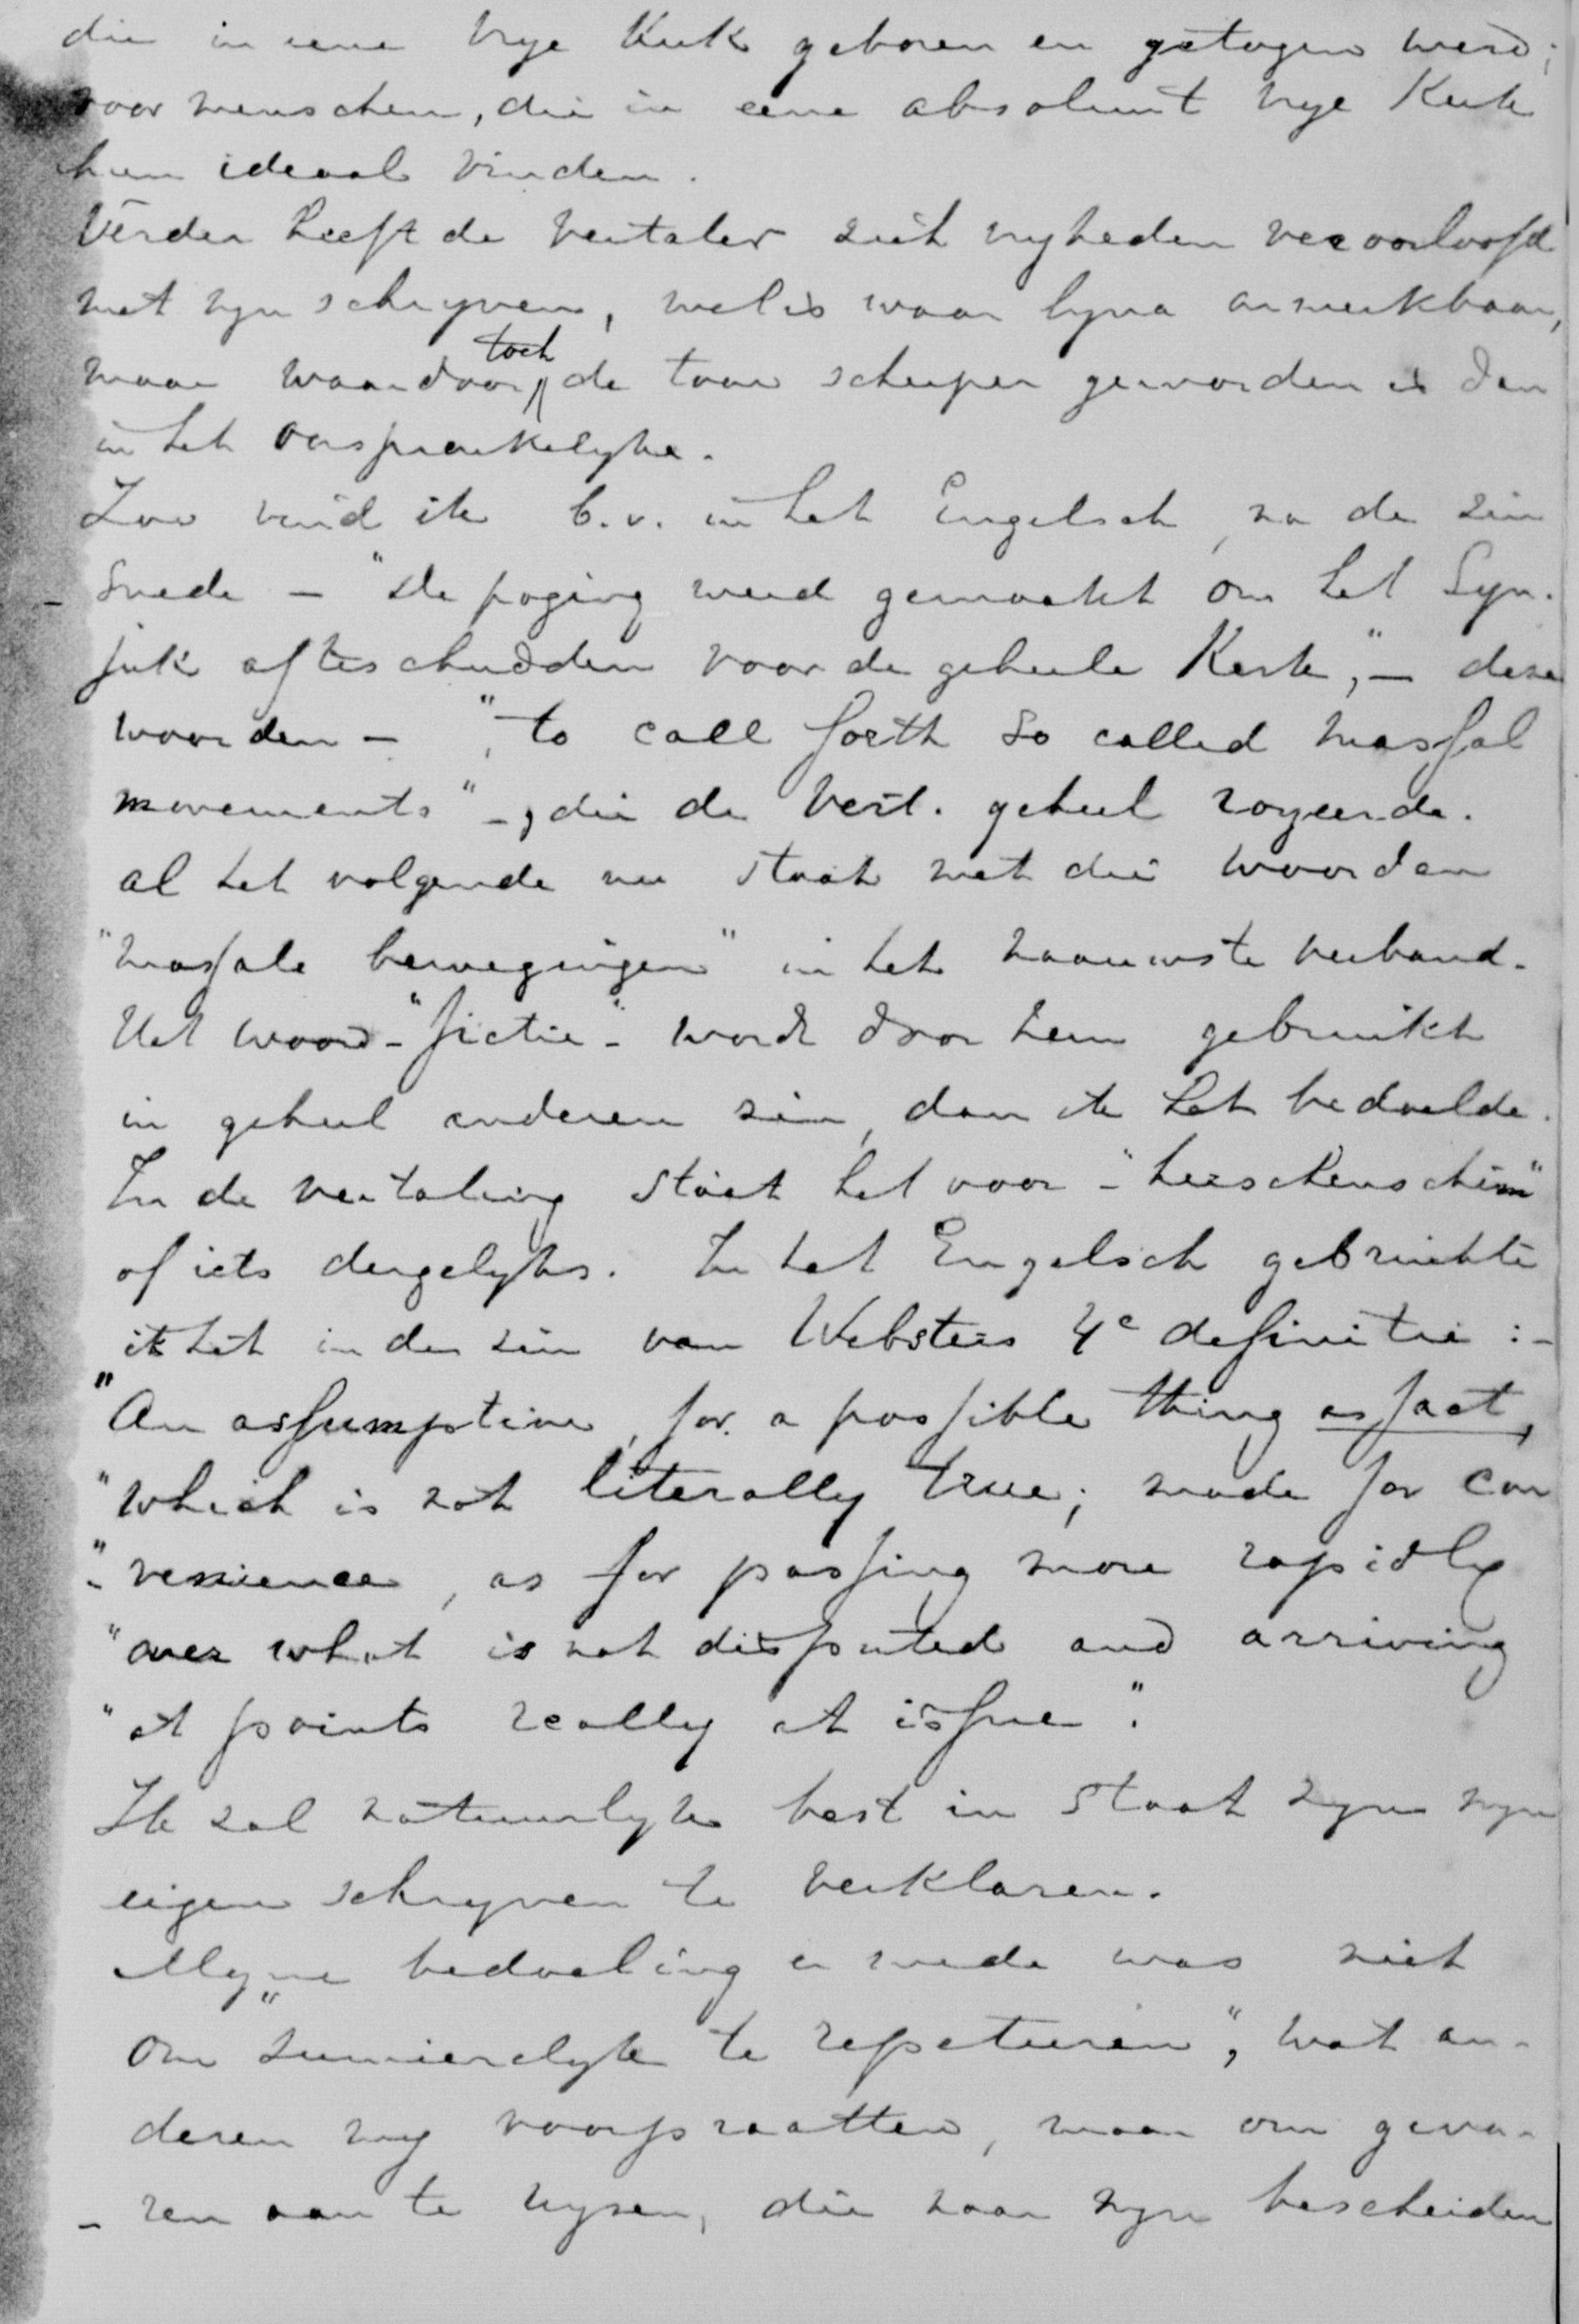 die in eene vrye Kerk geboren en getogen werd;
voor menschen, die in eene absoluut vrye Kerk
hun ideaal vinden.
Verder heeft de vertaler zich vryheden veroorloofd
met myn schryven, welis waar byna onmerkbaar,
maar waardoor toch de toon scherper geworden is dan
in het oorspronkelyke.
Zoo vind ik b.v. in het Engelsch, na de zin
snede - "De poging werd gemaakt om het Syn.
juk afteschudden voor de geheele Kerk," - deze
woorden - "to call forth so called massal
movements" -, die de Vert. geheel royeerde.
al het volgende nu staat met die woorden
"massale bewegingen" in het naauwste verband.
Het woord - "fictie" - wordt door hem gebruikt
in geheel anderen zin, dan ik het bedoelde.
In de vertaling staat het voor - "hersenschim"
of iets dergelyks. In het Engelsch gebruikte
ik het in den zin van Websters 4e definitie :-
"An assumption, for a possible thing as fact,
"which is not literally true; made for con
"-venience, as for passing more rapidly
"over what is not disputed and arriving
"at points really at issue".
Ik zal natuurlyk best in staat zyn myn
eigen schryven te verklaren.
Myne bedoeling er mede was niet
om "summierelyk te repeteeren", wat an-
deren my voorpraatten, maar om geva-
- ren aan te wyzen, die naar myn bescheiden